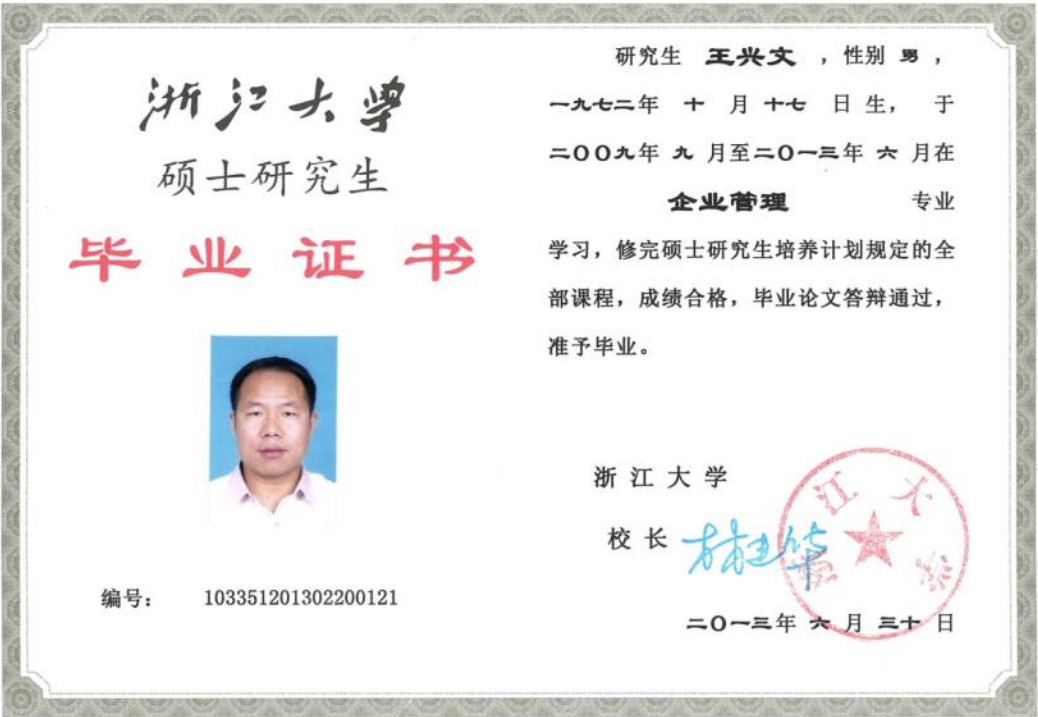 浙江大学
硕士研究生
毕业证书
编号： 103351201302200121
研究生 王兴文 ，性别 男 ，
一九七二年 十 月 十七 日 生， 于
二〇〇九年 九 月至二〇一三年 六 月在
企业管理 专业
学习，修完硕士研究生培养计划规定的全
部课程，成绩合格，毕业论文答辩通过，
准予毕业。
浙 江 大 学
校 长
二〇一三年 六 月 三十 日
浙江大学